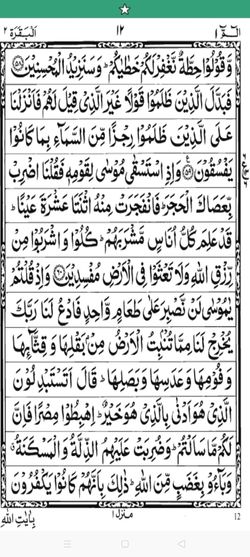 الٓمّٓ ١ ١٢ اَلْبَقَرَة ٢
وَّقُوْلُوْا حِطَّةٌ نَّغْفِرْ لَكُمْ خَطٰيٰكُمْ ؕ وَسَنَزِيْدُ الْمُحْسِنِيْنَ ﴿۵۸﴾
فَبَدَّلَ الَّذِيْنَ ظَلَمُوْا قَوْلًا غَيْرَ الَّذِيْ قِيْلَ لَهُمْ فَاَنْزَلْنَا
عَلَى الَّذِيْنَ ظَلَمُوْا رِجْزًا مِّنَ السَّمَآءِ بِمَا كَانُوْا
يَفْسُقُوْنَ ﴿۵۹﴾ وَاِذِ اسْتَسْقٰى مُوْسٰى لِقَوْمِهٖ فَقُلْنَا اضْرِبْ
بِّعَصَاكَ الْحَجَرَ ؕ فَانْفَجَرَتْ مِنْهُ اثْنَتَا عَشْرَةَ عَيْنًا ؕ
قَدْ عَلِمَ كُلُّ اُنَاسٍ مَّشْرَبَهُمْ ؕ كُلُوْا وَاشْرَبُوْا مِنْ
رِّزْقِ اللّٰهِ وَلَا تَعْثَوْا فِى الْاَرْضِ مُفْسِدِيْنَ ﴿۶۰﴾ وَاِذْ قُلْتُمْ
يٰمُوْسٰى لَنْ نَّصْبِرَ عَلٰى طَعَامٍ وَّاحِدٍ فَادْعُ لَنَا رَبَّكَ
يُخْرِجْ لَنَا مِمَّا تُنْۢبِتُ الْاَرْضُ مِنْۢ بَقْلِهَا وَقِثَّآئِهَا
وَفُوْمِهَا وَعَدَسِهَا وَبَصَلِهَا ؕ قَالَ اَتَسْتَبْدِلُوْنَ
الَّذِيْ هُوَ اَدْنٰى بِالَّذِيْ هُوَ خَيْرٌ ؕ اِهْبِطُوْا مِصْرًا فَاِنَّ
لَكُمْ مَّا سَاَلْتُمْ ؕ وَضُرِبَتْ عَلَيْهِمُ الذِّلَّةُ وَالْمَسْكَنَةُ ۗ
وَبَآءُوْ بِغَضَبٍ مِّنَ اللّٰهِ ؕ ذٰلِكَ بِاَنَّهُمْ كَانُوْا يَكْفُرُوْنَ
بِاٰيٰتِ اللّٰهِ منزل ١ 12